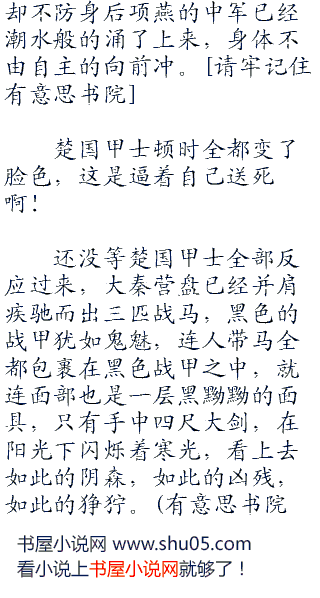 却不防身后项燕的中军已经
潮水般的涌了上来，身体不
由自主的向前冲。[请牢记住
有意思书院]
楚国甲士顿时全都变了
脸色，这是逼着自己送死
啊！
还没等楚国甲士全部反
应过来，大秦营盘已经并肩
疾驰而出三匹战马，黑色的
战甲犹如鬼魅，连人带马全
都包裹在黑色战甲之中，就
连面部也是一层黑黝黝的面
具，只有手中四尺大剑，在
阳光下闪烁着寒光，看上去
如此的阴森，如此的凶残，
如此的狰狞。(有意思书院
书屋小说网 www.shu05.com
看小说上书屋小说网就够了！